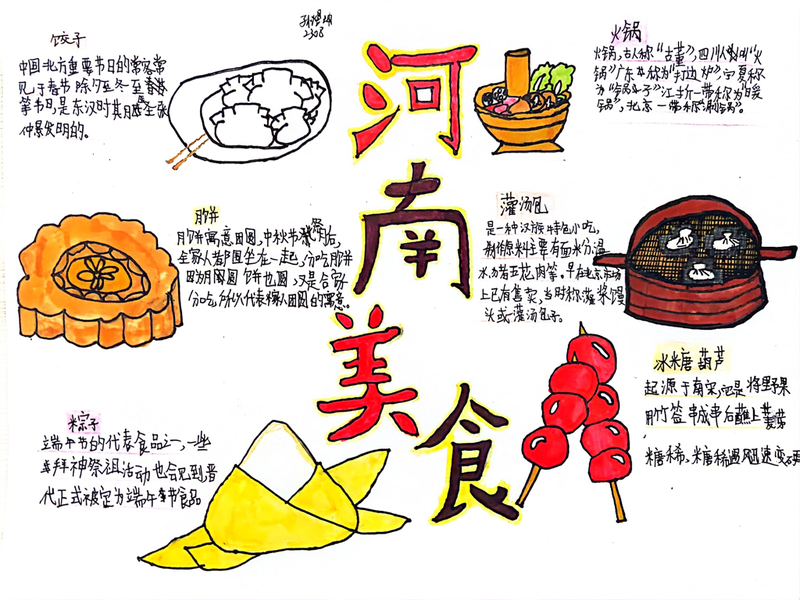 2308
河南美食
饺子
中国北方重要节日的常客常
见于春节 除夕 至冬至
等节日,是东汉时其月医圣张
仲景发明的。
火锅
火锅,古人称“古董”,四川人
锅”广东
为“锅子”江
锅”,北京一带称
月饼
月饼寓意团圆,中秋节祭月后,
全家人都围坐在一起,分吃月饼
因为月圆 饼也圆,又是合家
分吃,所以代表家人团圆的寓意。
灌汤包
是一种汉族特色小吃,
制原料主要有面粉、温
水、猪五花肉等,早在北宋市场
上已有售卖,当时称灌浆馒
头或灌汤包子。
冰糖葫芦
起源于南宋,它是将野果
用竹签串成串后蘸上麦芽
糖稀,糖稀遇风迅速变硬
粽子
端午节的代表食品之一,一些
拜神祭祖活动也会见到晋
代正式被定为端午节食品